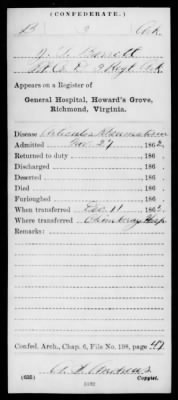 (CONFEDERATE.)
B 3 Ark
Pt Co E 3 Regt Ark
Appears on a Register of
General Hospital, Howard's Grove,
Richmond, Virginia.
Disease Articular Rheumatism
Admitted Nov. 27, 1862.
Returned to duty , 186 .
Discharged , 186 .
Deserted , 186 .
Died , 186 .
Furloughed , 186 .
When transferred Dec 11, 1862.
Where transferred Chimboraz Hosp
Remarks:
Confed. Arch., Chap. 6, File No. 198, page 47
(635) Copyist.